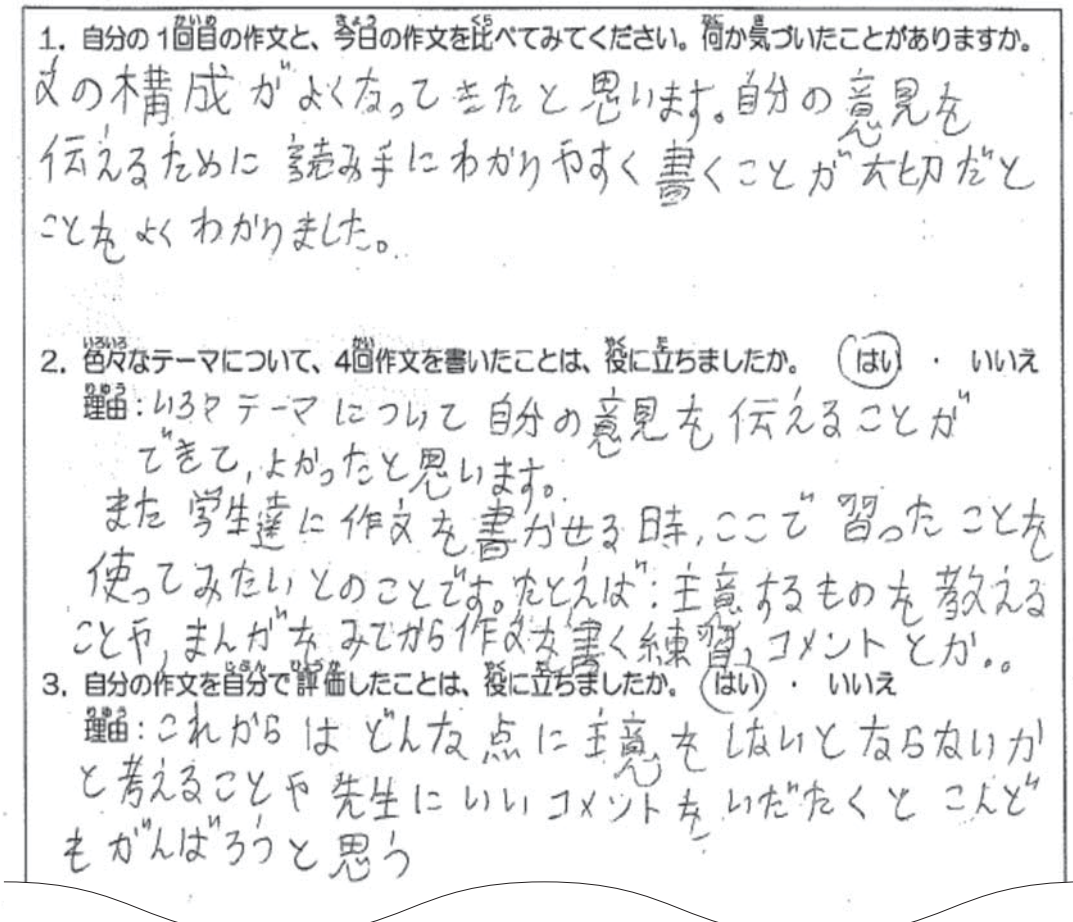 1. 自分の1回目の作文と、今日の作文を比べてみてください。何か気づいたことがありますか。
文の構成がよくなってきたと思います。自分の意見を
伝えるために読み手にわかりやすく書くことが大切だと
ことをよくわかりました。
2. 色々なテーマについて、4回作文を書いたことは、役に立ちましたか。 はい ・ いいえ
理由：いろ々テーマについて自分の意見を伝えることが
できて,よかったと思います。
また学生達に作文を書かせる時,ここで習ったことを
使ってみたいとのことです。たとえば：主意するものを教える
ことや,まんがをみてから作文を書く練習,コメントとか。。
3. 自分の作文を自分で評価したことは、役に立ちましたか。 はい ・ いいえ
理由：これからはどんな点に主意をしないとならないか
と考えることや先生にいいコメントをいだたくとこんど
もがんばろうと思う